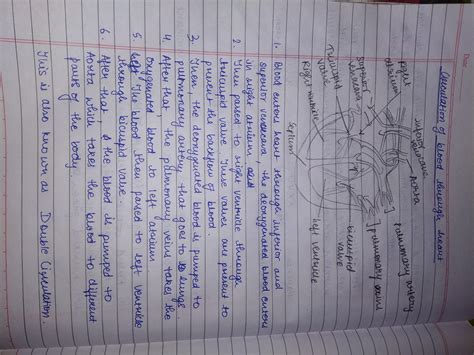 Circulation of blood through heart
inferior venacava
Aorta
Pulmonary artery
Pulmonary
Right
superior venacava
Tricuspid valve
Right ventricle
Septum
bicuspid valve
left ventricle
1. Blood enters heart through inferior and
superior venacava the deoxygenated blood enters
in right atrium and
2. Then passed to right ventricle through
tricuspid valve. These valves are present to
prevent the backflow of blood
3. Then, the deoxygenated blood is pumped to
pulmonary artery that goes to lungs.
4. After that, the pulmonary veins takes the
oxygenated blood to left atrium
5. The blood then passed to left ventricle
through bicuspid valve
6. After that, the blood is pumped to
Aorta which takes the blood to different
parts of the body.
This is also known as Double Circulation.